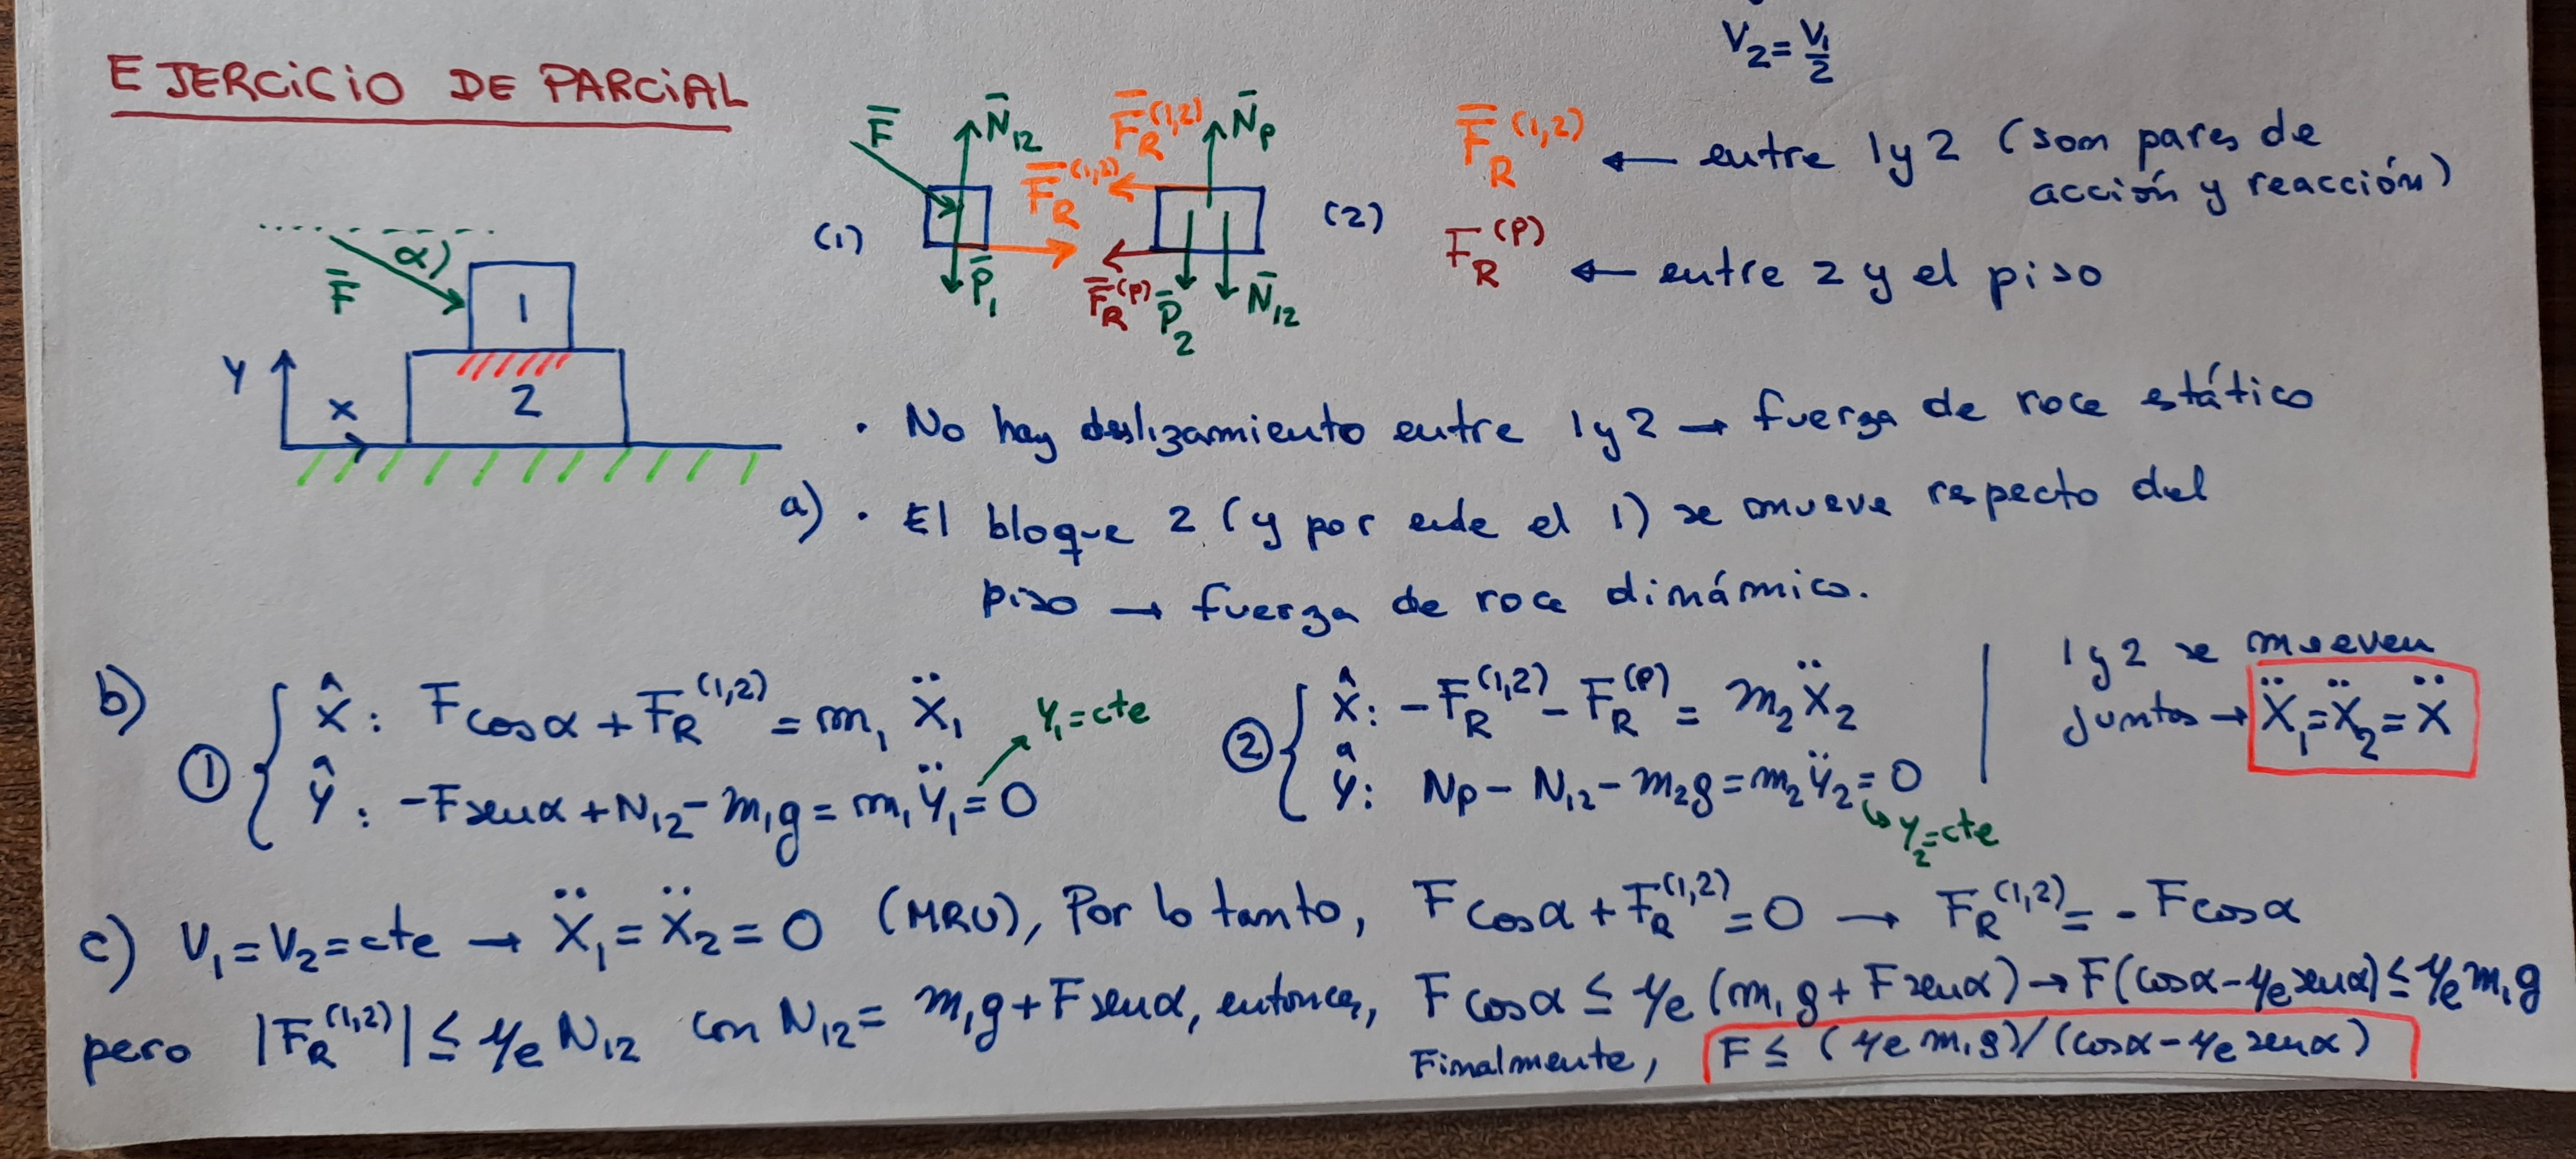 V₂ = V₁/2
EJERCICIO DE PARCIAL
F̄ N̄₁₂ F̄_R^(1,2) N̄_P
F̄_R^(1,2)
(1) P̄₁ F̄_R^(P) P̄₂ N̄₁₂ (2)
F̄_R^(1,2) ← entre 1 y 2 (son pares de
acción y reacción)
F_R^(P) ← entre 2 y el piso
α)
F̄ 1
Y
X 2
· No hay deslizamiento entre 1 y 2 → fuerza de roce estático
a) · El bloque 2 (y por ende el 1) se mueve respecto del
piso → fuerza de roce dinámico.
b) ① { x̂: F cosα + F_R^(1,2) = m₁ Ẍ₁
ŷ: -F senα + N₁₂ - m₁g = m₁ Ÿ₁ = 0 Y₁=cte
② { x̂: -F_R^(1,2) - F_R^(P) = m₂ Ẍ₂
ŷ: N_P - N₁₂ - m₂g = m₂ Ÿ₂ = 0 ↳ Y₂=cte
1 y 2 se mueven
juntos → Ẍ₁=Ẍ₂=Ẍ
c) V₁=V₂=cte → Ẍ₁=Ẍ₂=0 (MRU), Por lo tanto, F cosα + F_R^(1,2) = 0 → F_R^(1,2) = -F cosα
pero |F_R^(1,2)| ≤ μe N₁₂ con N₁₂ = m₁g + F senα, entonces, F cosα ≤ μe (m₁g + F senα) → F(cosα - μe senα) ≤ μe m₁g
Finalmente, F ≤ (μe m₁g)/(cosα - μe senα)